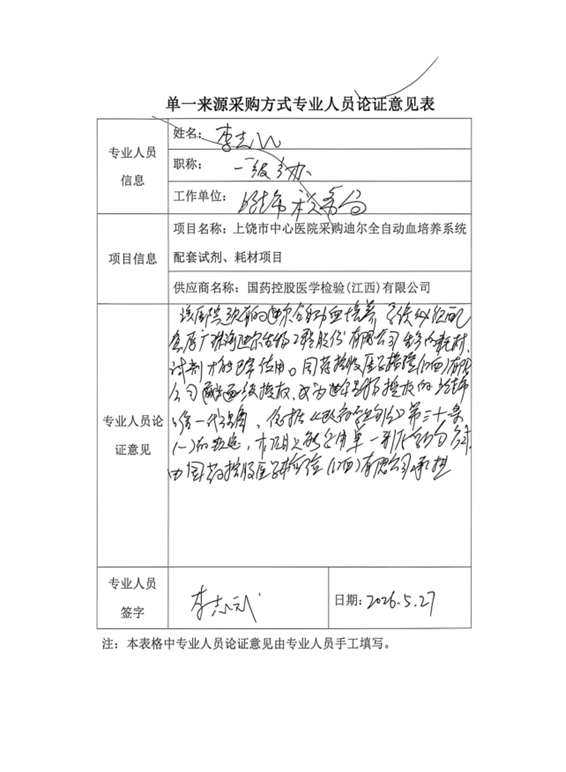 单一来源采购方式专业人员论证意见表
专业人员
信息
姓名：李志
职称：一级
工作单位：
项目信息
项目名称：上饶市中心医院采购迪尔全自动血培养系统
配套试剂、耗材项目
供应商名称：国药控股医学检验(江西)有限公司
专业人员论
证意见
该医院现有的迪尔全自动血培养系统必须配
套用广珠海迪尔生物工程股份有限公司生产的耗材、
试剂才能正常使用。国药控股医学检验(江西)有限
公司授权，成为迪尔品牌授权的
唯一代理商，依据《政府采购法》第三十一条
(一)的规定，单一来源采购方式
由国药控股医学检验(江西)有限公司承担
专业人员
签字
李志
日期：2026.5.27
注：本表格中专业人员论证意见由专业人员手工填写。